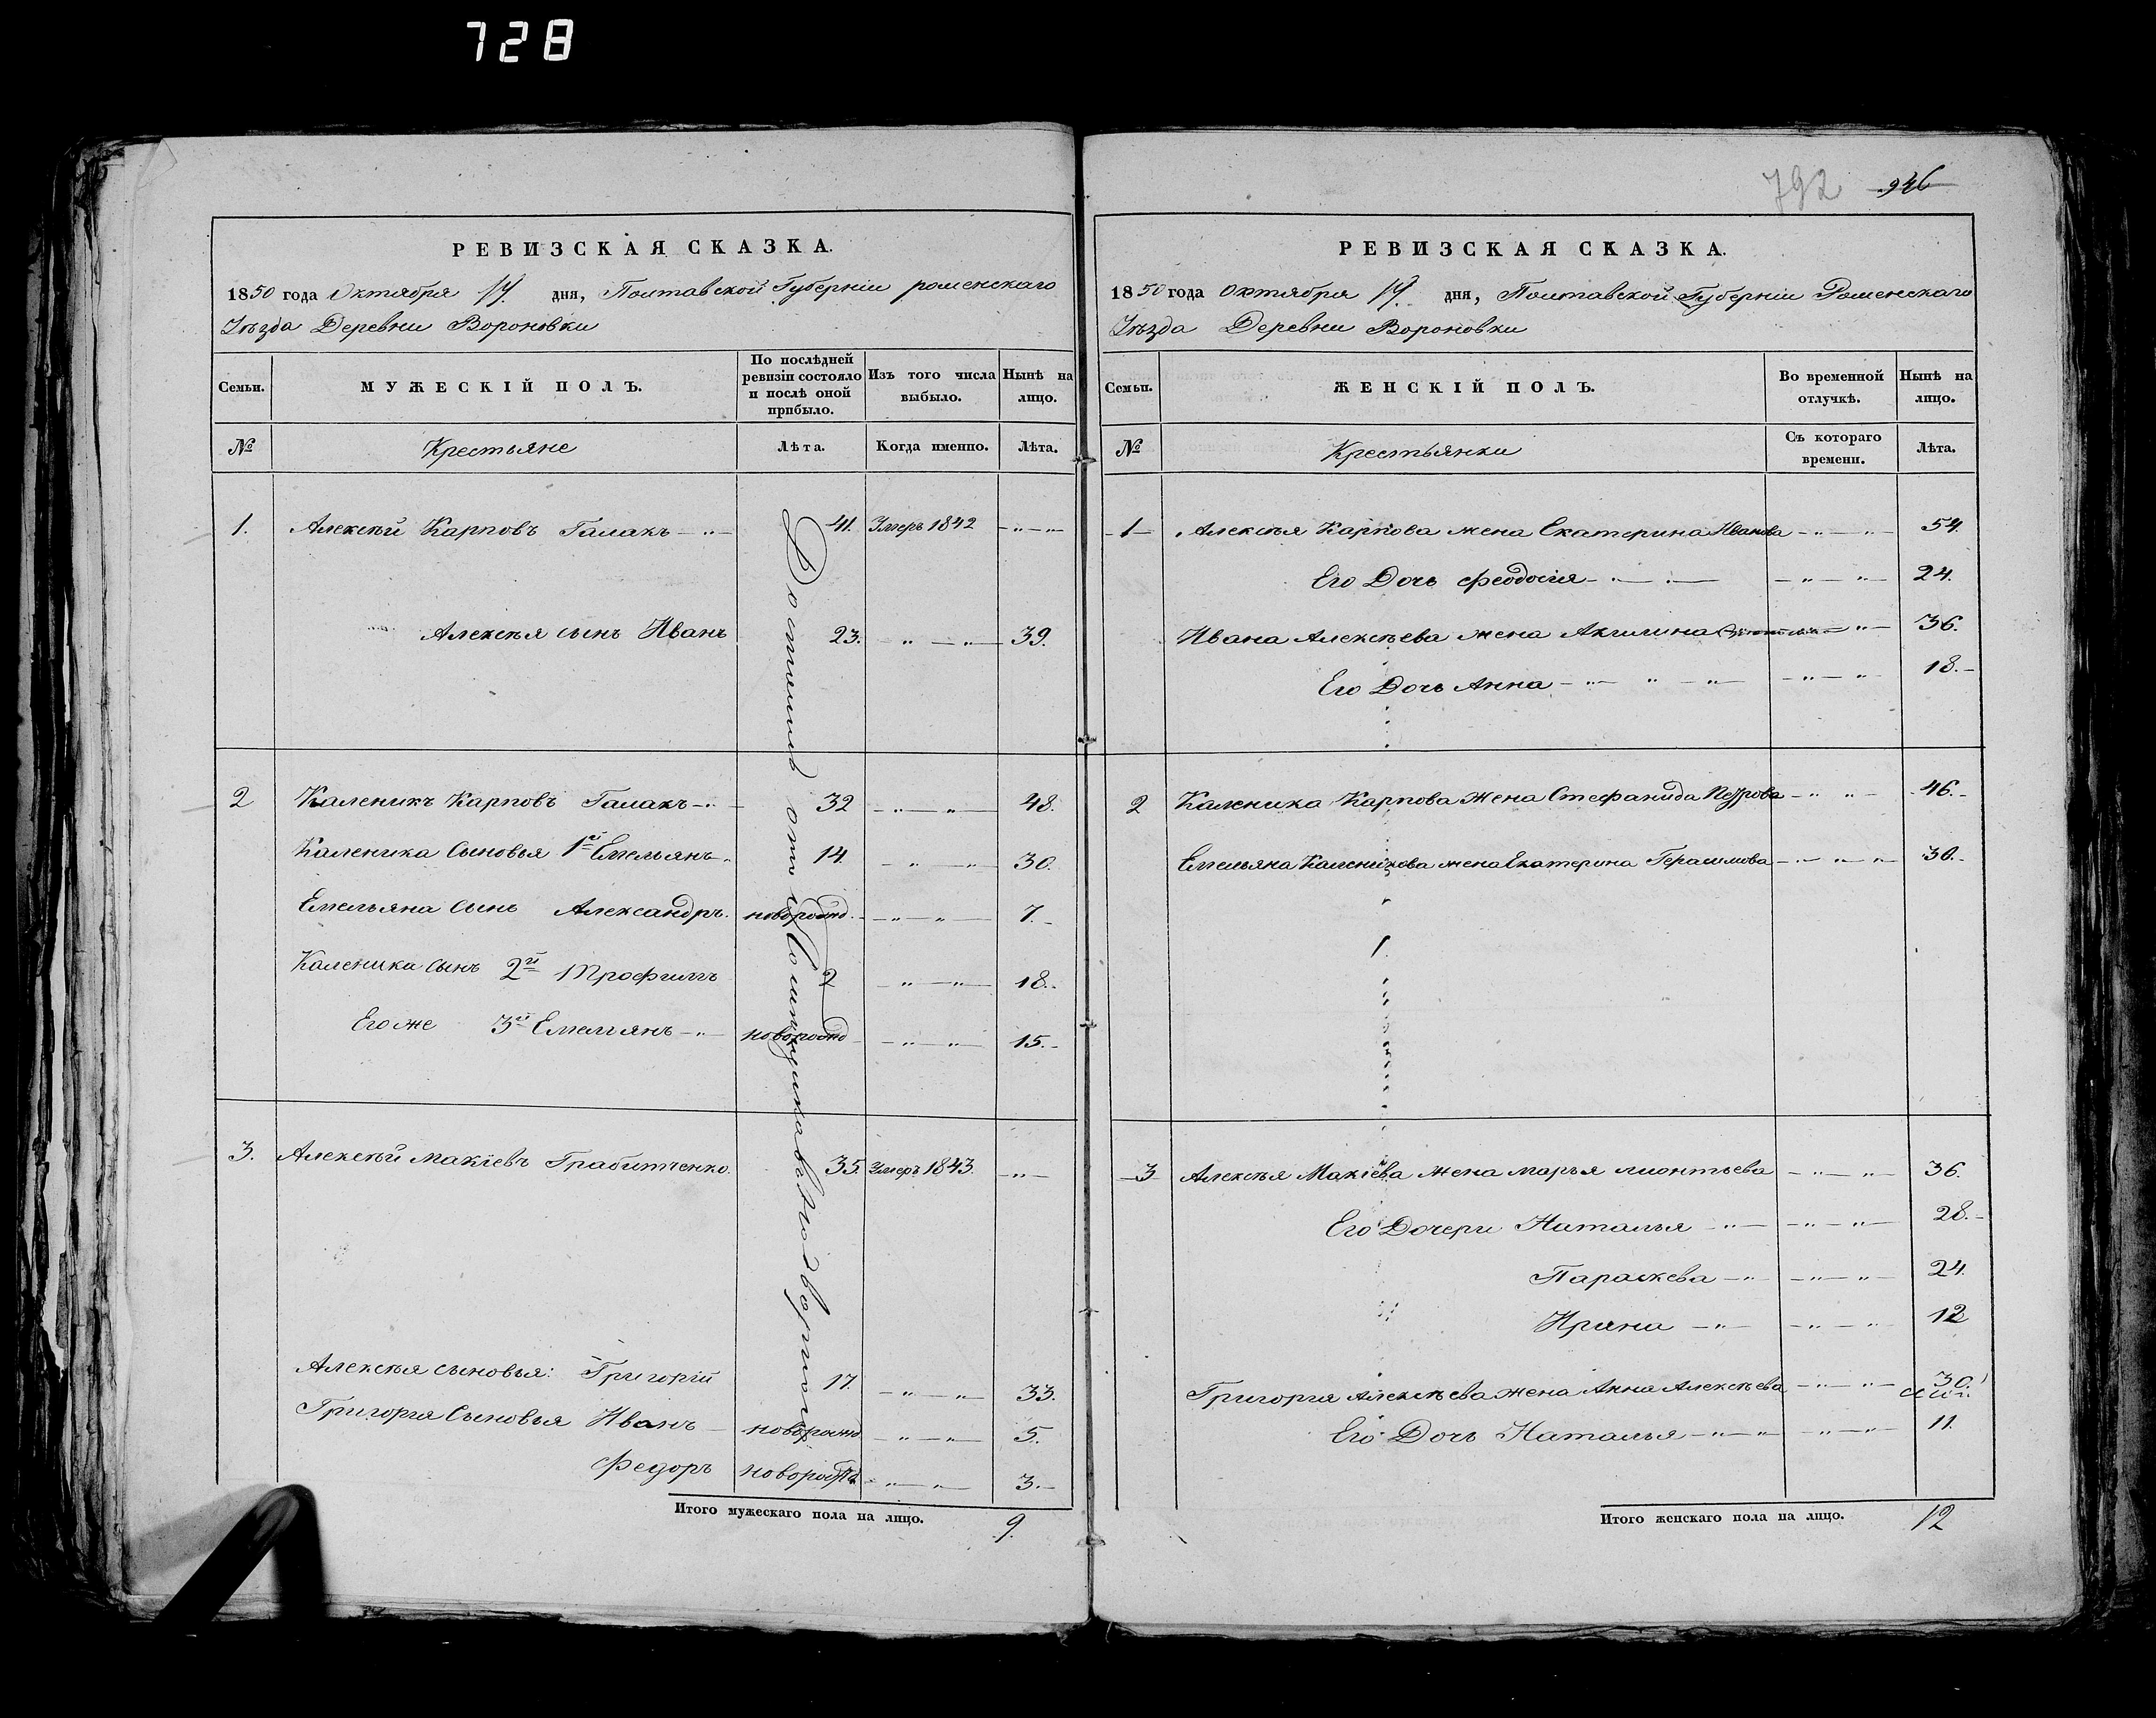 728
РЕВИЗСКАЯ СКАЗКА.
1850 года Октября 17 дня, Полтавской Губерніи роменскаго
Уѣзда Деревни Вороновки
Семьи.
МУЖЕСКІЙ ПОЛЪ.
По послѣдней ревизіи состояло и послѣ оной прибыло.
Изъ того числа выбыло.
Нынѣ на лицо.
№ Крестьяне Лѣта. Когда именно. Лѣта.
1. Алексѣй Карповъ Галакъ 41. Умеръ 1842
Алексѣя сынъ Иванъ 23. 39.
2 Каленикъ Карповъ Галакъ 32 48.
Каленика Сыновья 1й Емельянъ 14. 30.
Емельяна сынъ Александръ. новорожд. 7.
Каленика сынъ 2й Трофимъ 2 18.
Его же 3й Емельянъ новорожд 15.
3. Алексѣй Макіевъ Грабитченко. 35 Умеръ 1843.
Алексѣя сыновья: Григорій 17. 33.
Григорія Сыновья Иванъ новорожд 5.
Федоръ новорожд 3.
Итого мужескаго пола на лицо. 9.
792 946
РЕВИЗСКАЯ СКАЗКА.
1850 года Октября 17 дня, Полтавской Губерніи Роменскаго
Уѣзда Деревни Вороновки
Семьи.
ЖЕНСКІЙ ПОЛЪ.
Во временной отлучкѣ.
Нынѣ на лицо.
№ Крестьянки Съ котораго времени. Лѣта.
1 Алексѣя Карпова жена Екатерина Иванова 54.
Его Дочь Феодосія 24.
Ивана Алексѣева жена Акилина 36.
Его Дочь Анна 18.
2 Каленика Карпова жена Стефанида Петрова 46.
Емельяна Каленикова жена Екатерина Герасимова 30.
3 Алексѣя Макіева жена марья лионтьева 36.
Его Дочери Наталья 28.
Параскева 24.
Ирина 12
Григорія Алексѣева жена Анна Алексѣева 30.
Его Дочь Наталья 11.
Итого женскаго пола на лицо. 12